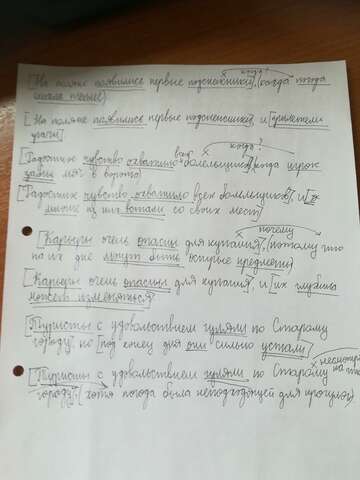 когда?
[На поляне появились первые подснежники], (когда погода
стала теплее)
[На поляне появились первые подснежники], и [прилетели
грачи].
всех когда?
[Радостное чувство охватило болельщиков], (когда игрок
забил мяч в ворота)
[Радостное чувство охватило всех болельщиков], и [
многие из них встали со своих мест]
почему
[Карьеры очень опасны для купания], (потому что
на их дне могут быть острые предметы)
[Карьеры очень опасны для купания], и [их глубина
может изменяться].
[Туристы с удовольствием гуляли по Старому
городу], но [под конец дня они сильно устали]
несмотря
на что
[Туристы с удовольствием гуляли по Старому
городу], (хотя погода была неподходящей для прогулки)